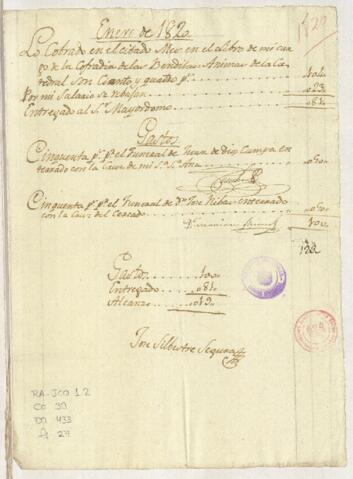 Enero de 1820
1820
Lo Cobrado en el citado Mes en el Libro de mi car
go de la Cofradia de las Benditas Animas de la Ca
tedral son Ciento, y quatro p.s 104
Por mi Salario se rebajan 023
Entregado al S.r Mayordomo 081
Gastos
Cinquenta p.s p.r el Funeral de
terrado con la Cruz de mi S.a S.ta Ana 050
Cinquenta p.s p.r el Funeral de D.n Jose Ribas enterrado
con la Cruz del Cercado 050
100
Gastos 100
Entregado 081
Alcanze 019
Jose Silbestre Segura
RA-JCO 12
CO 30
DO 433
f 27